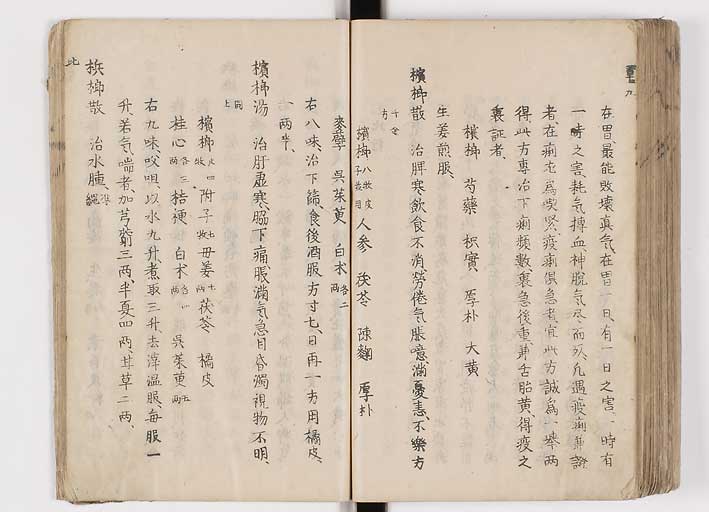 在胃最能敗壞真氣在胃一日有一日之害一時有
一時之害耗氣搏血神脫氣尽而死凡遇疫痢兼證
者在痢尤為喫緊疫痢俱急者宜此方誠為一挙兩
得此方専治下痢頻數裏急後重兼舌胎黄得疫之
裏証者
檳榔 芍藥 枳實 厚朴 大黄
生姜煎服
檳榔散 治脾寒飲食不消勞倦氣脹噫滿憂恚不樂方
千金方
檳榔八枚皮子並用 人参 茯苓 陳麴 厚朴
麥糵 吳茱萸 白朮各二兩
右八味治下篩食後酒服方寸七日再一方用橘皮
一兩半
檳榔湯 治肝虚寒脇下痛脹滿氣急目昏濁視物不明
同上
檳榔 附子七枚 母姜七兩 茯苓 橘皮
桂心各三兩 桔梗 白朮各四兩 吳茱萸五兩
右九味㕮咀以水九升煮取三升去滓温服每服一
升若氣喘者加芎藭三兩半夏四兩甘草二兩
檳榔散 治水腫